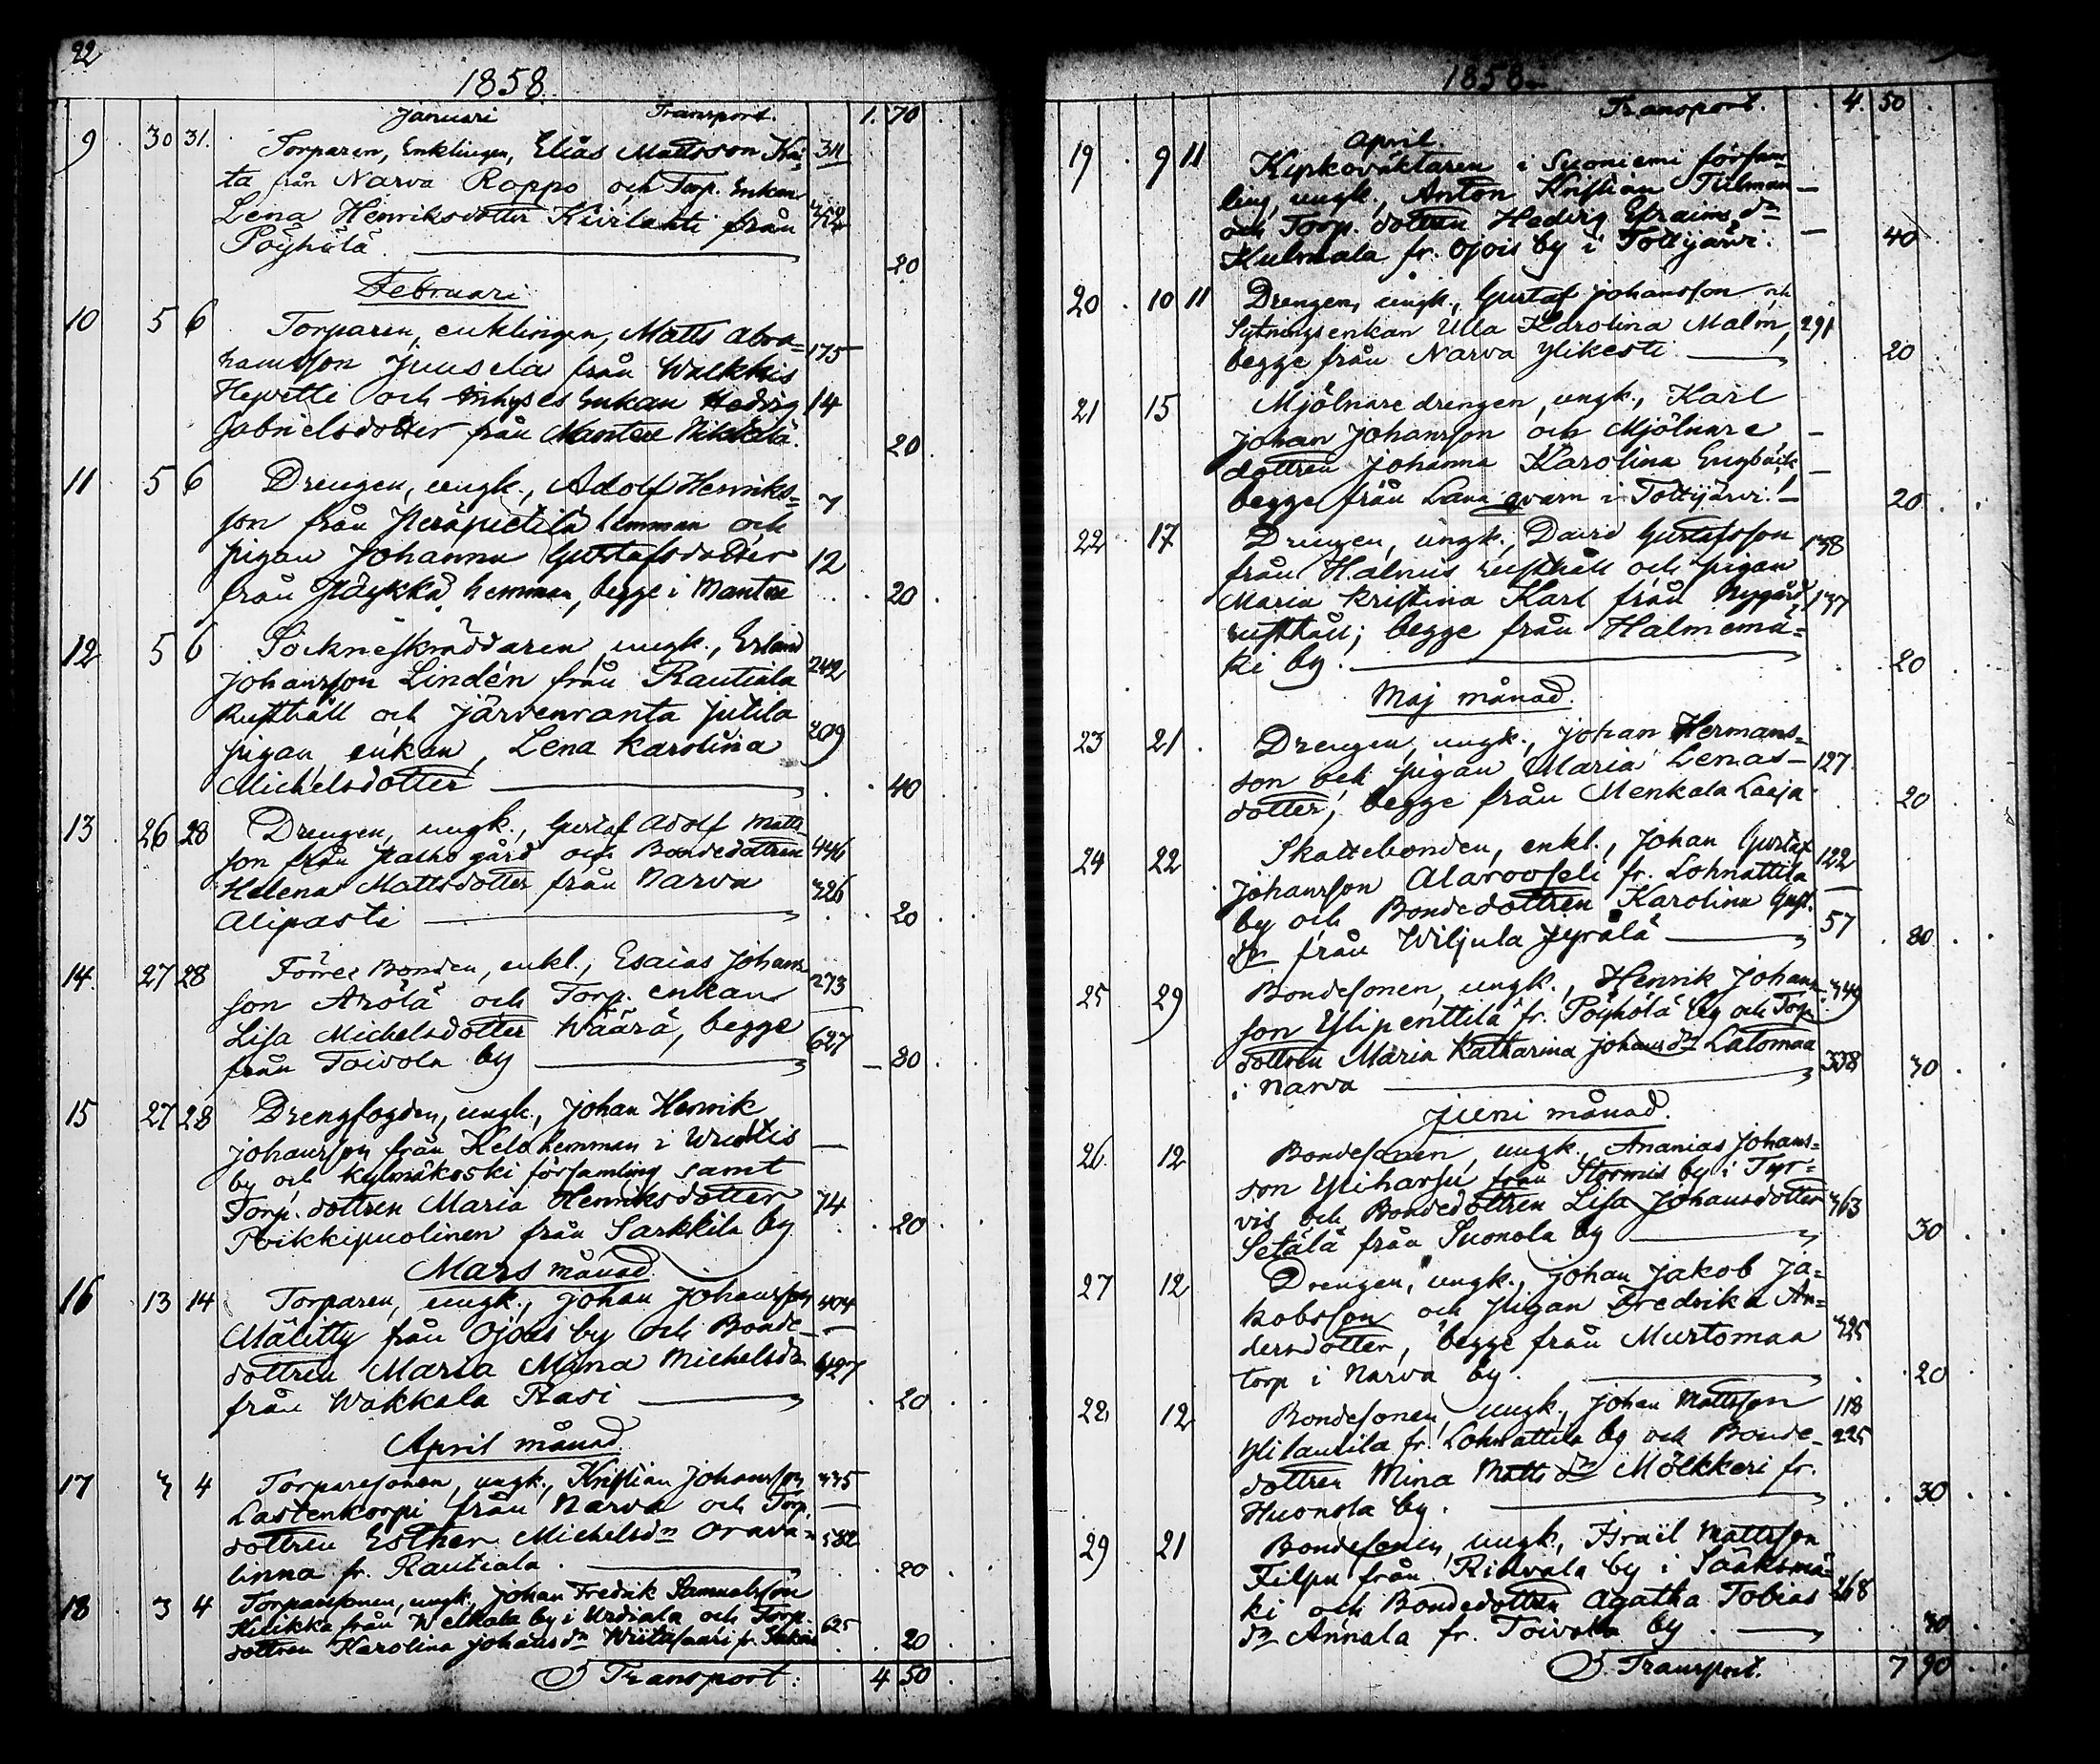 92
1858.
Januari Transport. 1. 70
9 30 31. Torparen, Enklingen, Elias Mattsson Kui= 311
ta från Narva Roppo och Torp. Enkan
Lena Henriksdotter Kivilahti från 352
Pöyhölä. 20
Februari
10 5 6 Torparen, enklingen, Matts Abra= 175
hamsson Juusela från Walkkis
Heyrelli och Inhyses Enkan Hedvig 14
Gabrielsdotter från Mantere Nikkilä. 20
11 5 6 Drengen, ungk., Adolf Henriks= 7
son från Peräpietilä hemman och
pigan Johanna Gustafsdotter 12
från Päykkä hemman, begge i Mantere 20
12 5 6 Sockneskräddaren, ungk., Erland 242
Johansson Lindén från Rautiala
Rusthåll och Järvenranta Jutila 209
pigan, enkan, Lena Karolina
Michelsdotter 40
13 26 28 Drengen, ungk., Gustaf Adolf Matts
son från Pasko gård och Bondedottren 446
Helena Mattsdotter från Narva 326
Alipasti 20
14. 27 28 Förre Bonden, enkl., Esaias Johans
son Arölä och Torp. enkan 273
Lisa Michelsdotter Wäärä, begge 627
från Toivola by 80
15 27 28 Drengfogden, ungk., Johan Henrik
Johansson från Kela hemman i Wredtis —
by och Kylmäkoski församling samt
Torp. dottren Maria Henriksdotter 74
Poikkipuolinen från Sarkkila by 20
Mars månad
16 13 14 Torparen, ungk., Johan Johansson 404
Mälitty från Ojois by och Bonde —
dottren Maria Mina Michelsdr 427
från Wakkala Rasi 20
April månad
17 3 4 Torparesonen, ungk., Kristian Johansson 335
Lastenkorpi från Narva och Torp. —
dottren Esther Michelsdr Orava= 582
linna fr. Rautiala. 20
18 3 4 Torparesonen, ungk., Johan Fredrik Samuelsson
Kuikka från Welkala by i Urdiala och Torp. 625
dottren Karolina Johansdr Wiitasaari fr. 20
S. Transport: 4 50
1858.
Transport. 4. 50
April
19 9 11 Kyrkoväktaren i Suoniemi församl
ling, ungk., Anton Kristian Tulman —
och Torp. dottren Hedvig Efraims dr —
Kulmala fr. Ojois by i Tottijärvi. 40
20 10 11 Drengen, ungk., Gustaf Johansson och
Sytningsenkan Ulla Karolina Malm, 291
begge från Narva Ylikesti 20
21 15 Mjölnaredrengen, ungk., Karl
Johan Johansson och Mjölnare —
dottren Johanna Karolina Engbäck —
begge från Lana qvarn i Tottijärvi. 20
22 17 Drengen, ungk., David Gustafsson 138
från Halmis rusthåll och pigan
Maria Kristina Karl från Nygård 137
rusthåll; begge från Halmemä=
ki by. 20
Maj månad.
23 21 Drengen, ungk., Johan Hermans=
son och pigan Maria Lenas— 127
dotter, begge från Menkala Laija 20
24 22 Skattebonden, enkl., Johan Gustaf 122
Johansson Alarooseli fr. Lohnattila —
by och Bondedottren Karolina Gust. 57
dr från Wiljula Jyrälä 80
25 29 Bondesonen, ungk., Henrik Johans= 349
son Ylipenttilä fr. Pöyhölä by och Torp
dottren Maria Katharina Johansdr Latomaa 338
i Narva 30
Juni månad.
26. 12 Bondesonen, ungk., Ananias Johans=
son Yliharju från Stormis by i Tyr=
vis och Bondedottren Lisa Johansdotter 363
Setälä från Suonola by 30
27 12 Drengen, ungk., Johan Jakob Ja=
kobsson och Pigan Fredrika An=
dersdotter, begge från Murtomaa 325
torp i Narva by. 20
28 12 Bondesonen, ungk., Johan Mattsson 118
Ylilautila fr. Lohnattila by och Bonde— 225
dottren Mina Matts dr Mölkkeri fr.
Huonola by. 30
29 21 Bondesonen, ungk., Israël Mattsson
Filpu från Ridvala by i Sääksmä=
ki och Bondedottren Agatha Tobias 268
dr Annala fr. Toivola by. 30
S. Transport. 7 90